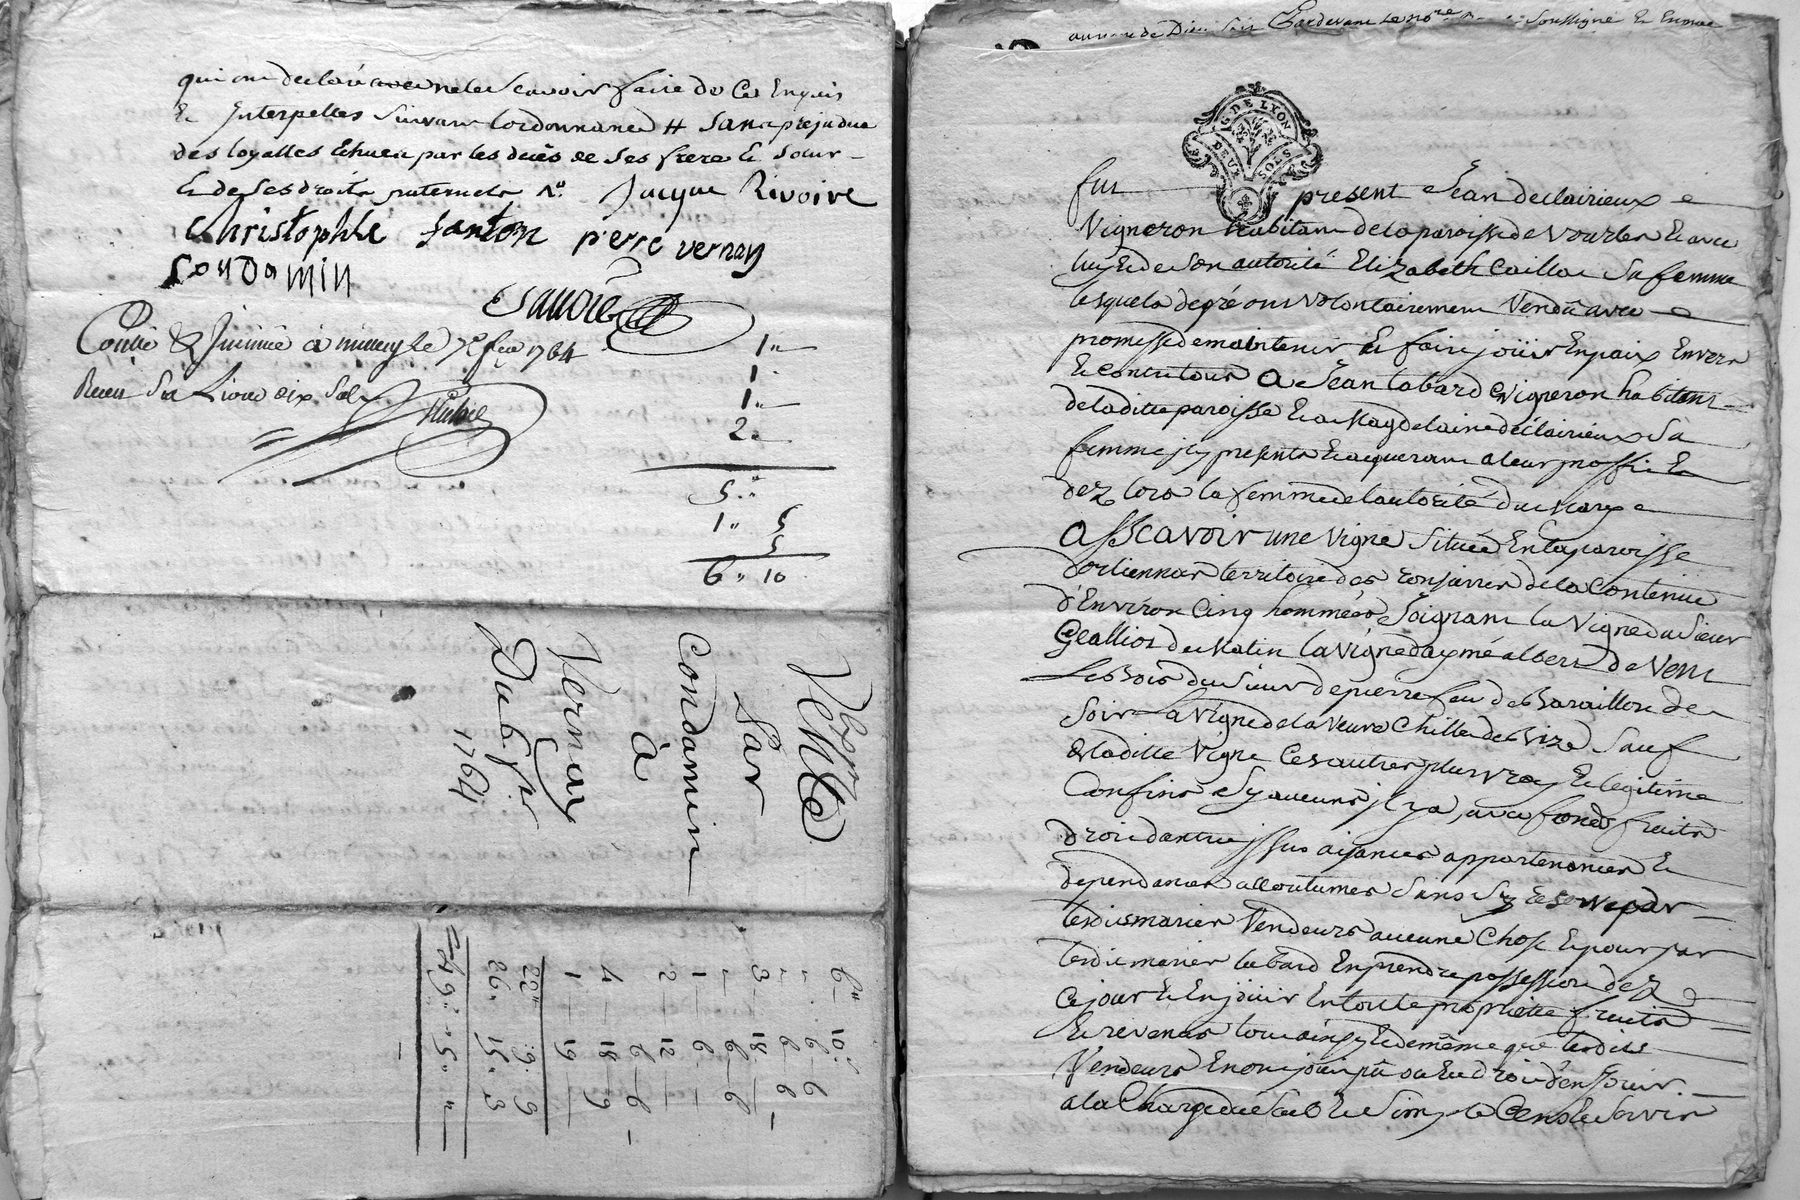 qui ont declaré ne le scavoir faire de ce Enquis
Et Interpelles suivant lordonnance # Sans prejudice
des loyalles Echues par les deces de ses frere Et Sœur
Et de ses droits paternels
Jacque Rivoire
Christophle fanton pierre vernay
Condamin
Collé & à 7e 1764
Receu Six Livre dix Sols
1"
1"
1"
2"
5"
1" 5
5
6" 10
7bre
Vente
Par
Condamin
à
Vernay
Du 6
1764
6" 10
5 6 6
3 18
1 6 6
2 12
4 18 6
1 19 9
22" 9 9
26" 15 3
49" 5 "
au nom de Dieu soit Pardevant le no.re soussigné Et En
G. DE LYON
DEUX SOLS
fut present Jean declairieux
Vigneron habitant de la paroisse de vourles Et avec
luy Et de son autorité Elizabeth Caillot Sa femme
lesquels de gré ont volontairement Vendu avec
promesse de maintenir Et faire joüir En paix Envers
Et contre tous A Jean labard Vigneron habitant
de ladite paroisse Et a Magdelaine declairieux Sa
femme jcy presents Et acquerant a leur proffit Et
dez lors la femme de l'autorité du Mary
Asscavoir une Vigne Située En la paroisse
dorliennas territoire des ronziere de la Contenue
d'Environ Cinq hommées Joignant la Vigne du Sieur
Geallios de Matin la vigne daymé albert de Vent
Les Bois du Sieur depierre feu de Barailhon de
Soir La vigne de la veuve Chille de Bize Sauf
de ladite Vigne Ces autres plus vray Et legitime
Confins Sy aucuns jl y a, avec fonds fruits
droit dentrée jssus aisances appartenances Et
dependances accoutumes Sans Sy reserver par
lesdits mariés Vendeurs aucune Chose Et pour par
lesdit mariés labard En prendre possession dez
Ce jour Et En joüir En toute propriété fruits
Et revenus tout ainsy Et de même que lesdits
Vendeurs En ont joui pû ou Eu droit d'En Jouir
a la Charge de le Cens Et Servis